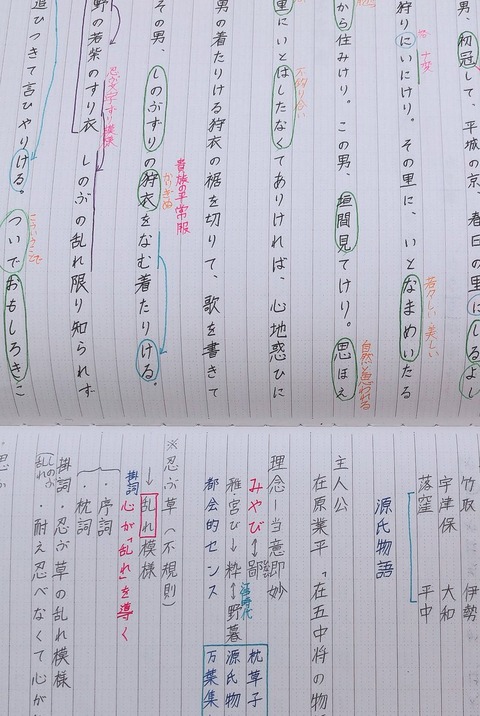 男、初冠して、平城の京、春日の里にしるよし
狩りにいにけり。その里に、いとなまめいたる
ナ変
若々しい 美しい
から住みけり。この男、垣間見てけり。思ほえ
自然と思われる
里にいとはしたなくてありければ、心地惑ひに
不釣り合い
男の着たりける狩衣の裾を切りて、歌を書きて
貴族の平常服
その男、しのぶずりの狩衣をなむ着たりける。
かりぎぬ
忍ぶ文字ずり模様
野の若紫のすり衣 しのぶの乱れ限り知られず
追ひつきて言ひやりける。ついでおもしろきこ
竹取 伊勢
宇津保 大和
落窪 平中
源氏物語
主人公
在原業平「在五中将の物
理念ー当意即妙
みやび↔鄙
雅宮び→粋↔野暮
都会的センス
枕草子
源氏物
万葉集
※忍ぶ草(不規則)
↓
乱れ模様
掛詞 心が「乱れ」を導く
・序詞
・枕詞
掛詞・忍ぶ草の乱れ模様
しのぶ
乱れ
・耐え忍べなくて心が